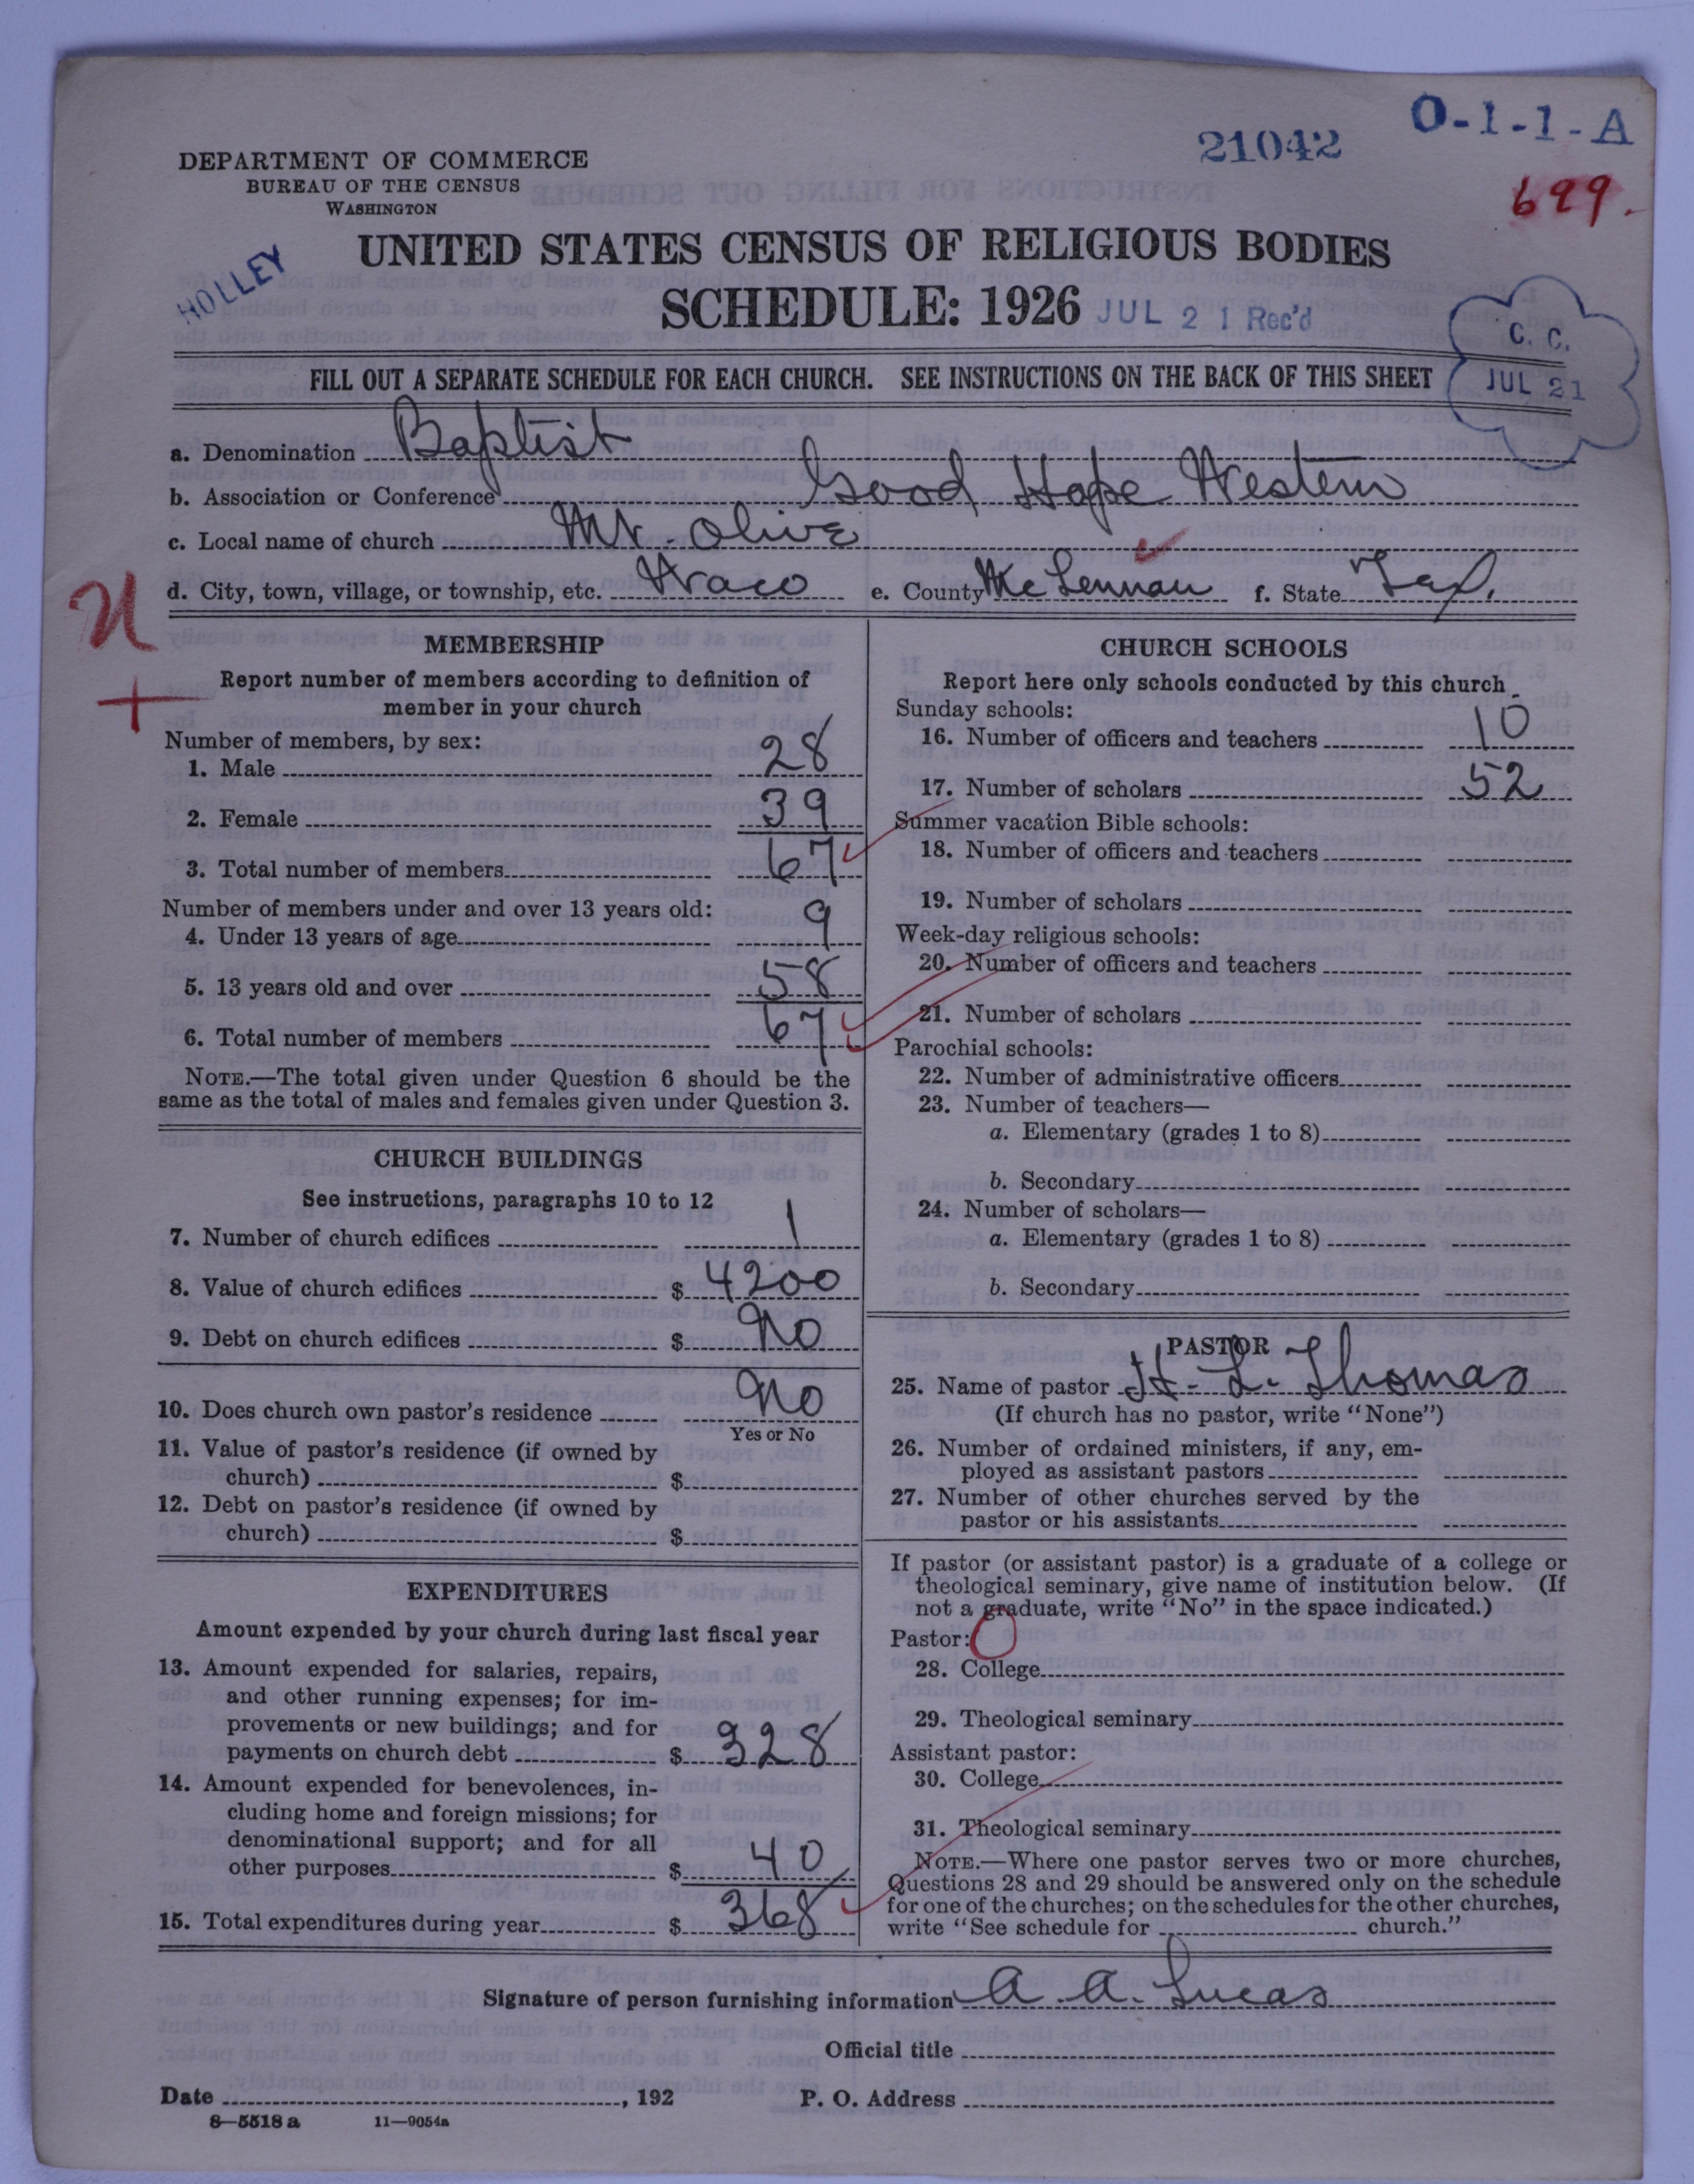 21042
O-1-1-A
699.
DEPARTMENT OF COMMERCE
BUREAU OF THE CENSUS
WASHINGTON
HOLLEY
UNITED STATES CENSUS OF RELIGIOUS BODIES
SCHEDULE: 1926 JUL 21 Rec'd
C. C.
JUL 21
FILL OUT A SEPARATE SCHEDULE FOR EACH CHURCH. SEE INSTRUCTIONS ON THE BACK OF THIS SHEET
a. Denomination Baptist
b. Association or Conference Good Hope Western
c. Local name of church Mt. Olive
d. City, town, village, or township, etc. Waco e. County McLennan f. State Tex.
MEMBERSHIP
Report number of members according to definition of
member in your church
Number of members, by sex:
1. Male 28
2. Female 39
3. Total number of members 67
Number of members under and over 13 years old:
4. Under 13 years of age 9
5. 13 years old and over 58
6. Total number of members 67
NOTE.—The total given under Question 6 should be the
same as the total of males and females given under Question 3.
CHURCH BUILDINGS
See instructions, paragraphs 10 to 12
7. Number of church edifices 1
8. Value of church edifices $ 4200
9. Debt on church edifices $ No
10. Does church own pastor's residence No
Yes or No
11. Value of pastor's residence (if owned by
church) $
12. Debt on pastor's residence (if owned by
church) $
EXPENDITURES
Amount expended by your church during last fiscal year
13. Amount expended for salaries, repairs,
and other running expenses; for im-
provements or new buildings; and for
payments on church debt $ 328
14. Amount expended for benevolences, in-
cluding home and foreign missions; for
denominational support; and for all
other purposes $ 40
15. Total expenditures during year $ 368
CHURCH SCHOOLS
Report here only schools conducted by this church
Sunday schools:
16. Number of officers and teachers 10
17. Number of scholars 52
Summer vacation Bible schools:
18. Number of officers and teachers
19. Number of scholars
Week-day religious schools:
20. Number of officers and teachers
21. Number of scholars
Parochial schools:
22. Number of administrative officers
23. Number of teachers—
a. Elementary (grades 1 to 8)
b. Secondary
24. Number of scholars—
a. Elementary (grades 1 to 8)
b. Secondary
PASTOR
25. Name of pastor H. L. Thomas
(If church has no pastor, write "None")
26. Number of ordained ministers, if any, em-
ployed as assistant pastors
27. Number of other churches served by the
pastor or his assistants
If pastor (or assistant pastor) is a graduate of a college or
theological seminary, give name of institution below. (If
not a graduate, write "No" in the space indicated.)
Pastor: O
28. College
29. Theological seminary
Assistant pastor:
30. College
31. Theological seminary
NOTE.—Where one pastor serves two or more churches,
Questions 28 and 29 should be answered only on the schedule
for one of the churches; on the schedules for the other churches,
write "See schedule for church."
Signature of person furnishing information A. A. Lucas
Official title
Date , 192 P. O. Address
8—5518 a 11—9054a